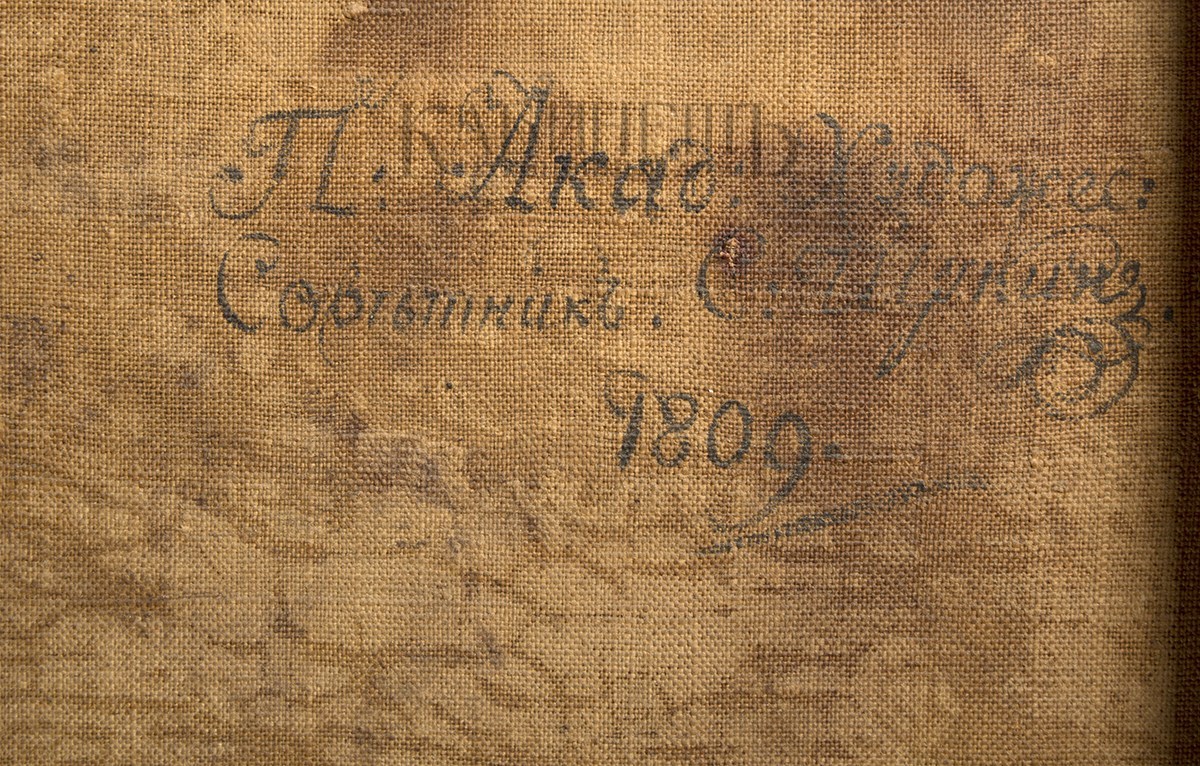 П. Акад: Художес:
Совѣтникъ. С. Щукинъ.
1809.